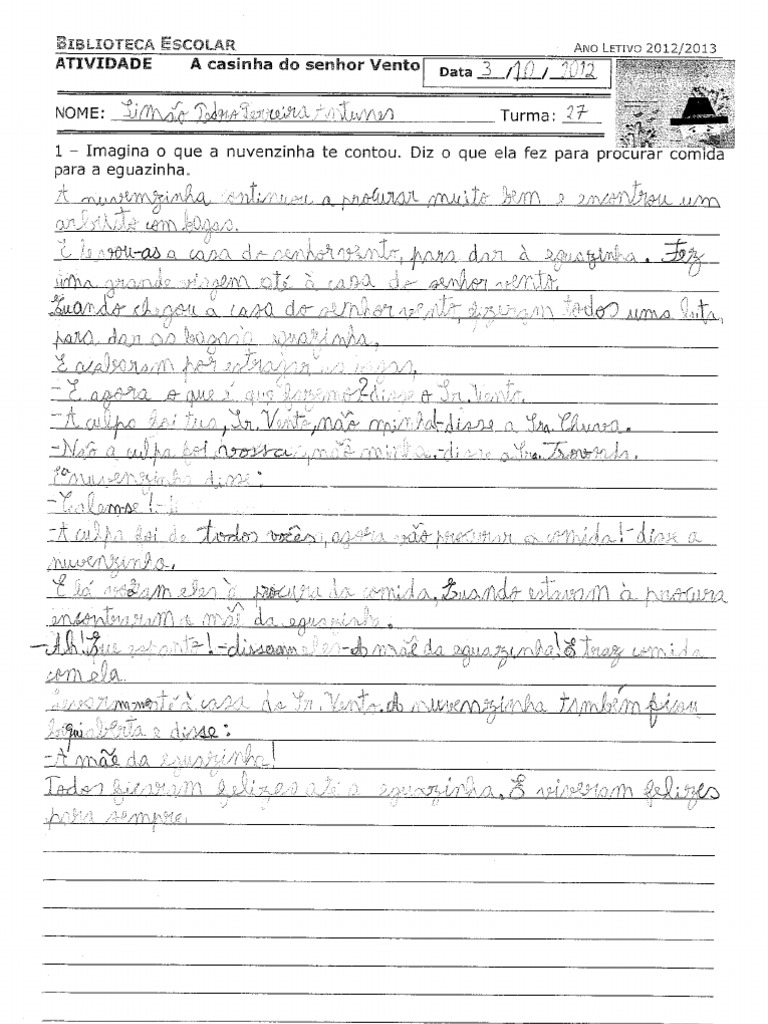 BIBLIOTECA ESCOLAR ANO LETIVO 2012/2013
ATIVIDADE A casinha do senhor Vento Data 3 /10 / 2012
NOME: Simão Pedro Ferreira Antunes Turma: 27
1 – Imagina o que a nuvenzinha te contou. Diz o que ela fez para procurar comida
para a eguazinha.
A nuvemzinha continuou a procurar muito bem e encontrou um
arbusto com bagas.
E levou-as a casa do senhor vento, para dar à eguazinha. Fez
uma grande viagem até à casa do senhor vento.
Quando chegou a casa do senhor vento, fizeram todos uma luta,
para dar as bagas à eguazinha,
E acabaram por estragar as bagas,
-E agora o que é que fazemos?-disse o Sr. Vento.
-A culpa foi tua, Sr. Vento, não minha-disse a Sra. Chuva.
-Não a culpa foi vossa, não minha.-disse a Sra.
E a nuvenzinha disse:
-Calem-se!
-A culpa foi de todos vocês, agora vão procurar a comida!-disse a
nuvenzinha.
E lá eles à procura da comida, Quando estavam à procura
encontraram a mãe da eguazinha.
-Ah! Que espanto!-disseram eles-A mãe da eguazinha! E traz comida
com ela.
à casa do Sr. Vento. A nuvenzinha também ficou
aberta e disse:
-A mãe da eguazinha!
Todos ficaram felizes até a eguazinha. E viveram felizes
para sempre.